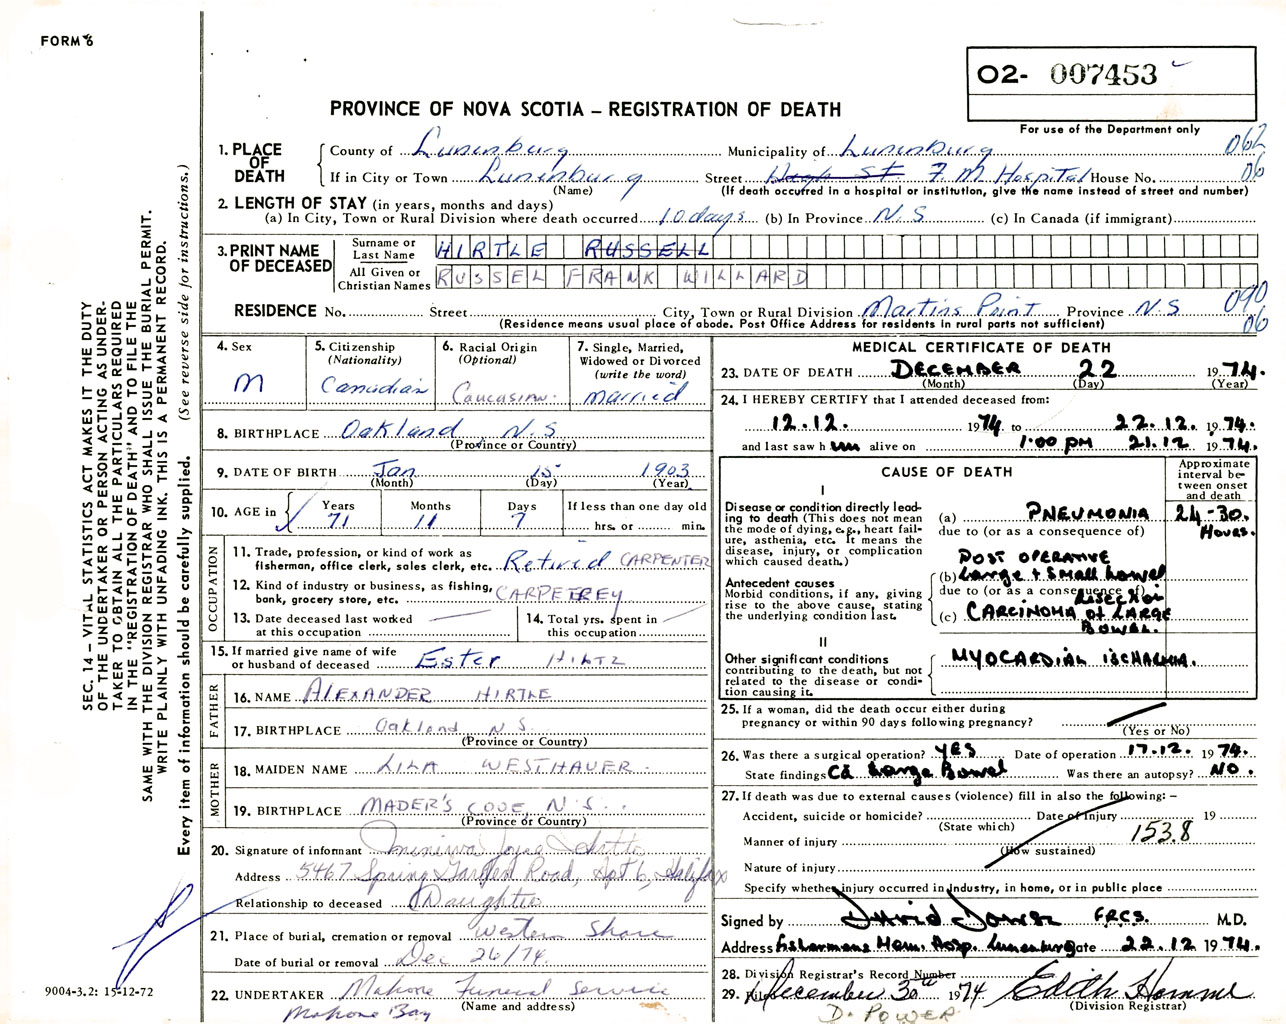 FORM 6
O2- 007453
PROVINCE OF NOVA SCOTIA – REGISTRATION OF DEATH
For use of the Department only
062
06
1. PLACE OF DEATH
County of Lunenburg Municipality of Lunenburg
If in City or Town Lunenburg Street High St. F. M Hospital House No.
(Name) (If death occurred in a hospital or institution, give the name instead of street and number)
2. LENGTH OF STAY (in years, months and days)
(a) In City, Town or Rural Division where death occurred 10 days (b) In Province N.S (c) In Canada (if immigrant)
3. PRINT NAME OF DECEASED
Surname or Last Name HIRTLE RUSSELL
All Given or Christian Names RUSSEL FRANK WILLARD
090
06
RESIDENCE No. Street City, Town or Rural Division Martins Point Province N.S
(Residence means usual place of abode. Post Office Address for residents in rural parts not sufficient)
4. Sex
M
5. Citizenship
(Nationality)
Canadian
6. Racial Origin
(Optional)
Caucasian
7. Single, Married,
Widowed or Divorced
(write the word)
Married
8. BIRTHPLACE Oakland N.S
(Province or Country)
9. DATE OF BIRTH Jan 15 1903
(Month) (Day) (Year)
10. AGE in
Years Months Days If less than one day old
71 11 7 hrs. or min.
OCCUPATION
11. Trade, profession, or kind of work as
fisherman, office clerk, sales clerk, etc. Retired CARPENTER
12. Kind of industry or business, as fishing,
bank, grocery store, etc. CARPETREY
13. Date deceased last worked
at this occupation
14. Total yrs. spent in
this occupation
15. If married give name of wife
or husband of deceased Ester HILTZ
FATHER
16. NAME ALEXANDER HIRTLE
17. BIRTHPLACE Oakland N.S
(Province or Country)
MOTHER
18. MAIDEN NAME LILA WESTHAVER
19. BIRTHPLACE MADER'S COVE N.S.
(Province or Country)
20. Signature of informant Joyce
Address 5467 Spring Garden Road, Apt 6, Halifax
Relationship to deceased Daughter
21. Place of burial, cremation or removal Western Shore
Date of burial or removal Dec 26/74
22. UNDERTAKER Mahone Funeral Service
(Name and address)
Mahone Bay
MEDICAL CERTIFICATE OF DEATH
23. DATE OF DEATH DECEMBER 22 1974.
(Month) (Day) (Year)
24. I HEREBY CERTIFY that I attended deceased from:
12.12. 1974 to 22.12. 1974.
and last saw him alive on 1:00 pm 21.12 1974.
CAUSE OF DEATH
Approximate
interval be-
tween onset
and death
I
Disease or condition directly lead-
ing to death (This does not mean
the mode of dying, e.g., heart fail-
ure, asthenia, etc. It means the
disease, injury, or complication
which caused death.)
(a) PNEUMONIA 24-30. HOURS.
due to (or as a consequence of)
Antecedent causes
Morbid conditions, if any, giving
rise to the above cause, stating
the underlying condition last.
POST OPERATIVE
(b) Large + Small bowel
due to (or as a consequence of)
Resection
(c) CARCINOMA of LARGE
BOWEL.
II
Other significant conditions
contributing to the death, but not
related to the disease or condi-
tion causing it.
MYOCARDIAL ISCHAEMIA.
25. If a woman, did the death occur either during
pregnancy or within 90 days following pregnancy?
(Yes or No)
26. Was there a surgical operation? YES Date of operation 17.12. 1974.
State findings Ca Large Bowel Was there an autopsy? NO.
27. If death was due to external causes (violence) fill in also the following: –
Accident, suicide or homicide? Date of Injury 19
(State which)
Manner of injury 153.8
(How sustained)
Nature of injury
Specify whether injury occurred in industry, in home, or in public place
Signed by David Power F.R.C.S. M.D.
Address Fishermens Mem. Hosp. Lunenburg Date 22.12 1974.
28. Division Registrar's Record Number
29. Filed December 30th 1974 Edith
(Division Registrar)
D. POWER
SEC. 14 – VITAL STATISTICS ACT MAKES IT THE DUTY
OF THE UNDERTAKER OR PERSON ACTING AS UNDER-
TAKER TO OBTAIN ALL THE PARTICULARS REQUIRED
IN THE "REGISTRATION OF DEATH" AND TO FILE THE
SAME WITH THE DIVISION REGISTRAR WHO SHALL ISSUE THE BURIAL PERMIT.
WRITE PLAINLY WITH UNFADING INK. THIS IS A PERMANENT RECORD.
Every item of information should be carefully supplied. (See reverse side for instructions.)
9004-3.2: 15-12-72